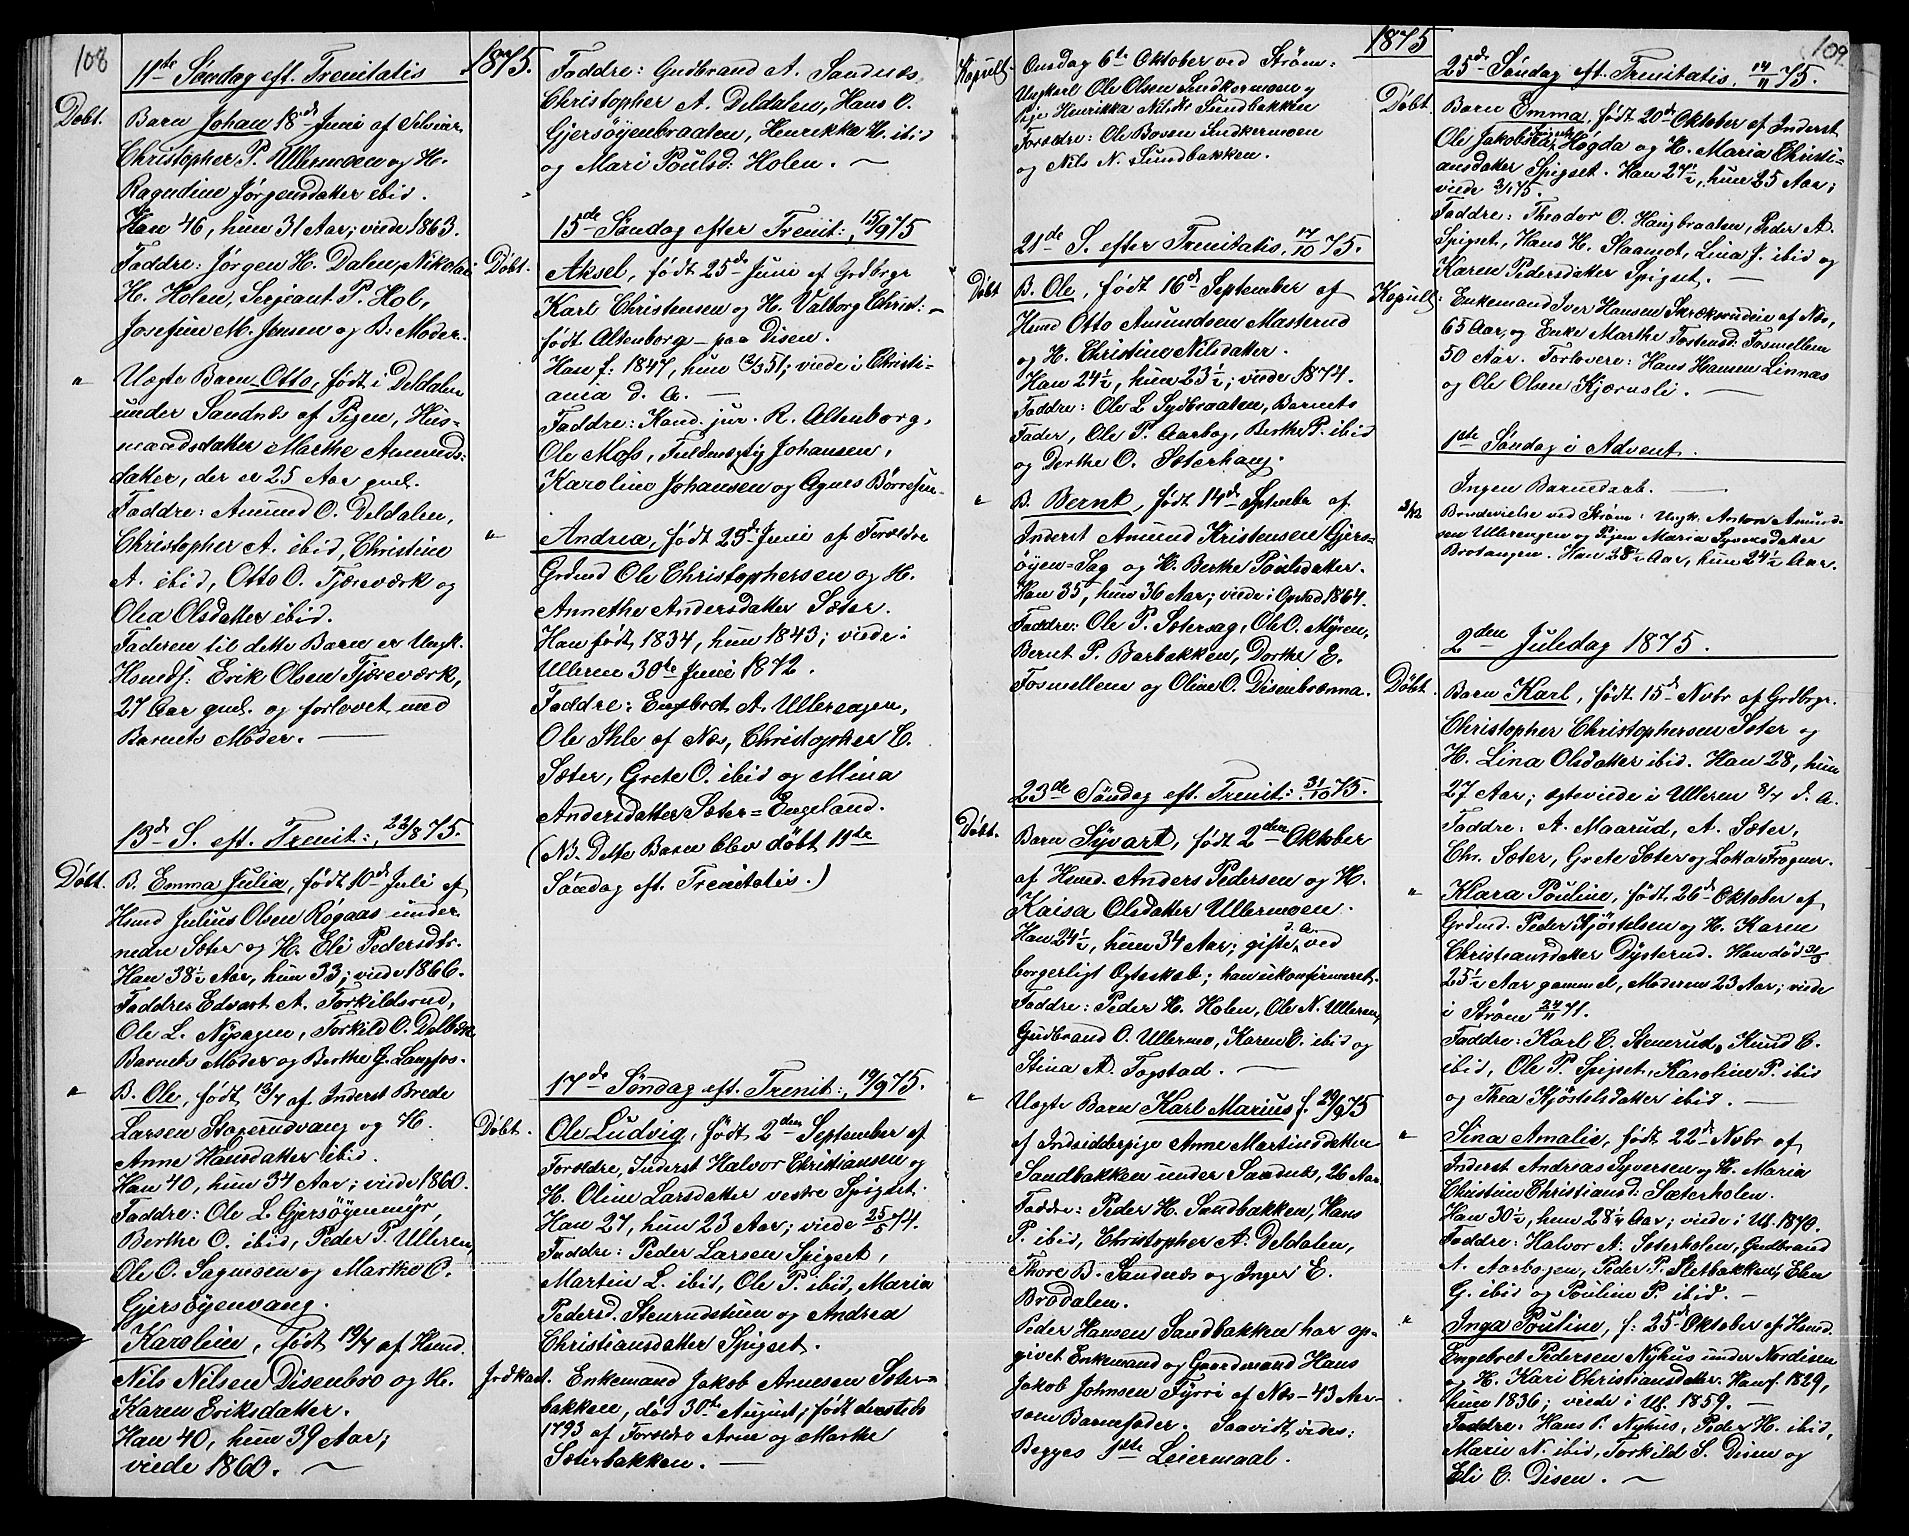 108
1875.
11te Søndag eft. Trenitatis
Døbt.
Barn Johan 18de Juni af Selveier
Christopher P. Ullermoen og H.
Ragndine Jørgensdatter ibid.
Han 46, hun 31 Aar; viede 1863.
Faddre: Jørgen H. Dalen, Nikolai
H. Holen, Serjeant P. Hol,
Josefine M. Jensen og B: Moder.
" Uægte Barn Otto, født i Deldalen
under Sandnæs af Pigen, Hus-
mandsdatter Marthe Amunds-
datter, der er 25 Aar gml.
Faddre: Amund O. Deldalen,
Christopher A. ibid, Christine
A. ibid, Otto O. Tjæreværk og
Olea Olsdatter ibid.
Faderen til dette Barn er Ungk.
Hsmdf: Erik Olsen Tjæreværk,
27 Aar gml. og forlovet med
Barnets Moder. —
13de S. eft. Trenit:, 22/8 75.
Døbt.
B. Emma Julia, født 10de Juli af
Hsmd Julius Olsen Rögaas under
nedre Sæter og H. Eli Pedersdtr.
Han 38½ Aar, hun 33; viede 1866.
Faddre: Edvart A. Torkildsrud,
Ole L. Nysagen, Torkild O. Dolbæk
Barnets Moder og Berthe G. Langfos.
" B. Ole, født 13/7 af Inderst Brede
Larsen Stagerudvang og H.
Anne Hansdatter ibid.
Han 40, hun 34 Aar; viede 1860.
Faddre: Ole L. Gjersøyenmyr,
Berthe O. ibid, Peder P. Ulleren,
Ole O. Sagmoen og Marthe C.
Gjersøyenvang.
Karoline, født 19/7 af Hsmd.
Nils Nilsen Disenbro og H.
Karen Eriksdatter.
Han 40, hun 39 Aar;
viede 1860. —
Faddre: Gudbrand A. Sandnæs,
Christopher A. Deldalen, Hans O.
Gjersöyenbraaten, Henrikke H. ibid
og Mari Poulsd: Holen. —
15de Søndag efter Trenit:, 15/9 75
Døbt.
Aksel, født 25de Juni af Grdbrgr
Karl Christensen og H. Valborg Christ: -
født Altenborg — paa Disen.
Han f: 1847, hun 12/3 51; viede i Christi-
ania d. A. —
Faddre: Kand. jur. R. Altenborg,
Ole Moss, Fuldmægtig Johansen,
Karoline Johansen og Agnes Börresen.
" Andrea, født 25de Juni af Forældre
Grdmd Ole Christophersen og H.
Annethe Andersdatter Sæter.
Han født 1834, hun 1843; viede i
Ulleren 30te Juni 1872.
Faddre: Engebret A. Ullerengen,
Ole Ihle af Næs, Christopher C.
Sæter, Grete O. ibid og Mina
Andersdatter Sæter=Engeland.
(NB. Dette Barn blev døbt 11te
Søndag eft. Trenitatis.)
17de Søndag eft. Trenit:, 19/9 75.
Døbt.
Ole Ludvig, født 2den September af
Forældre, Inderst Halvor Christiansen og
H. Oline Larsdatter vestre Spigset.
Han 27, hun 23 Aar; viede 25/5 74.
Faddre: Peder Larsen Spigset,
Martin L. ibid, Ole P. ibid, Maria
Pedersd. Stenrudstuen og Andrea
Christiansdatter Spigset.
Jrdkast. Enkemand Jakob Arnesen Sæter-
bakken, död 30te August; født dersteds
1793 af Forældre Arne og Marthe
Sæterbakken. —
1875
Kopull. Onsdag 6te Oktober ved Strøm:
Ungkarl Ole Olsen Lindkermoen og
Pige Henrikka Nilsdt. Sundbakken
Forældre: Ole Bovsen Lindkermoen
og Nils N. Sundbakken.
21de S. efter Trenitatis, 17/10 75.
Døbt
B. Ole, født 16de September af
Hsmd Otto Amundsen Masterud
og H. Christine Nilsdatter.
Han 24½, hun 23½; viede 1874.
Faddre: Ole L. Sydbraaten, Barnets
Fader, Ole P. Aarbog, Berthe P. ibid
og Dorthe O. Sæterhaug.
" B. Bernt, født 14de Septembr af
Inderst Amund Kristensen Gjers-
öyen=Sag og H. Berthe Poulsdatter.
Han 35, hun 36 Aar; viede i Opstad 1864.
Faddre: Ole P. Sætersag, Ole O. Myren,
Bernt P. Børbakken, Dorthe E.
Tosmellem og Oline O. Disenbrænna.
23de Søndag eft. Trenit: 31/10 75.
Døbt.
Barn Syvart, født 2den Oktober
af Hsmd. Anders Pedersen og H.
Kaisa Olsdatter Ullermoen.
Han 24½, hun 34 Aar; gifte d. A. ved
borgerligt Ægteskab; han ukonfirmeret.
Faddre: Peder H. Holen, Ole N. Ulleren,
Gudbrand O. Ullermo, Karen E. ibid og
Stina A. Fogstad. —
" Uægte Barn Karl Marius f. 29/9 75
af Indsidderpige Anne Martinsdatter
Sandbakken under Sandnæs, 26 Aar.
Faddre: Peder H. Sandbakken, Hans
P. ibid, Christopher A. Deldalen,
Thore B. Sandnæs og Inger E.
Brödalen.
Peder Hansen Sandbakken har op-
givet Enkemand og Gaardmand Hans
Jakob Johnsen Fyrri af Næs — 43 Aar
som Barnefader. Saavidt vides:
Begges 1ste Leiermaal.
109.
25de Søndag eft. Trenitatis, 14/11 75.
Døbt.
Barn Emma, født 20de Oktober af Inderst
Ole Jakobsen Høgda og H. Maria Christi-
ansdatter Spigset. Han 27½, hun 25 Aar;
viede 3/1 75.
Faddre: Theodor O. Haugbraaten, Peder A.
Spigset, Hans H. Slaamot, Lina J. ibid og
Karen Pedersdatter Spigset. —
Kopull: Enkemand Iver Hansen Skrækerudeie af Næs,
65 Aar, og Enke Marthe Tostensd: Tosmellem
50 Aar. Forlovere: Hans Hansen Linnæs
og Ole Olsen Kjærnsli. —
1ste Søndag i Advent.
Ingen Barnedaab. —
3/12
Brudevielse ved Strøm: Ungk. Anton Amund-
sen Ullerengen og Pigen Maria Syversdatter
Brotangen. Han 28½ Aar, hun 24½ Aar.
2den Juledag 1875.
Døbt.
Barn Karl, født 15de Novbr af Grdbrgr.
Christopher Christophersen Sæter og
H. Lina Olsdatter ibid. Han 28, hun
27 Aar; ægteviede i Ulleren 8/7 d. A.
Faddre: A. Maarud, A. Sæter,
Chr. Sæter, Grete Sæter og Lotta Frogner.
" Klara Pouline, født 26de Oktober af
Grdmd. Peder Kjöstelsen og H. Karen
Christiansdatter Dysterud. Han död
25½ Aar gammel, Moderen 23 Aar; viede
i Strøm 24/11 71.
Faddre: Karl C. Stenerud, Knud C.
ibid, Ole P. Spigset, Karoline P. ibid
og Thea Kjöstelsdatter ibid. —
" Sina Amalie, født 22de Novbr. af
Inderst Andreas Syversen og H. Maria
Christine Christiansd: Sæterholen.
Han 30½, hun 28¼ Aar; viede i Ull. 1870.
Faddre: Halvor A. Sæterholen, Gudbrand
A. Aarbogen, Peder P. Sletbakken, Elen
G. ibid og Pouline P. ibid. —
" Inga Pouline, f: 25de Oktober af Hsmd.
Engebret Pedersen Nyhus under Nordisen
og H. Kari Christiansdatter. Han f. 1829,
hun 1836; viede i Ull. 1859. —
Faddre: Hans P. Nyhus, Peder H. ibid,
Marie N. ibid, Torkild S. Disen og
Eli C. Disen. —